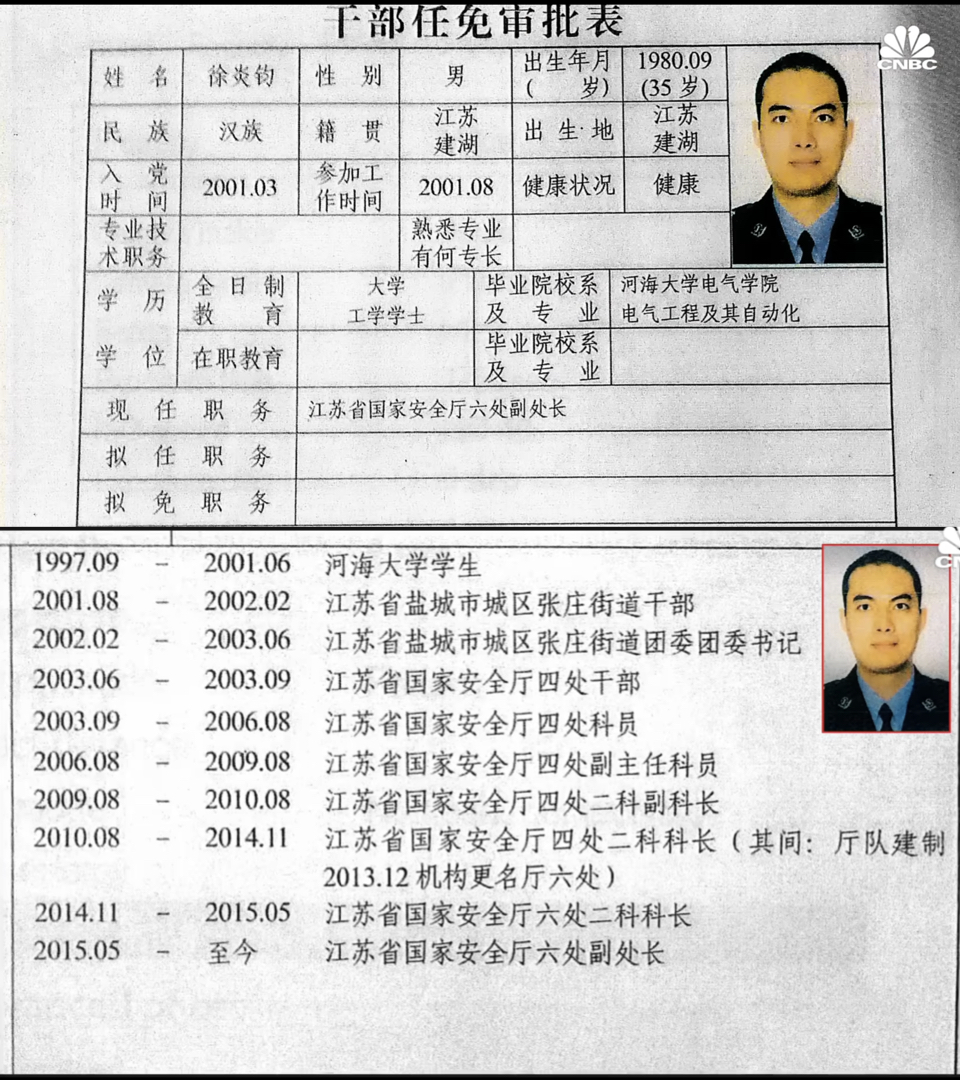 干部任免审批表
CNBC
姓 名 徐炎钧 性 别 男 出生年月 1980.09
( 岁) (35 岁)
民 族 汉族 籍 贯 江苏 出 生 地 江苏
建湖 建湖
入 党 2001.03 参加工 2001.08 健康状况 健康
时 间 作时间
专业技 熟悉专业
术职务 有何专长
学 历 全 日 制 大学 毕业院校系 河海大学电气学院
教 育 工学学士 及 专 业 电气工程及其自动化
学 位 在职教育 毕业院校系
及 专 业
现 任 职 务 江苏省国家安全厅六处副处长
拟 任 职 务
拟 免 职 务
1997.09 – 2001.06 河海大学学生
2001.08 – 2002.02 江苏省盐城市城区张庄街道干部
2002.02 – 2003.06 江苏省盐城市城区张庄街道团委团委书记
2003.06 – 2003.09 江苏省国家安全厅四处干部
2003.09 – 2006.08 江苏省国家安全厅四处科员
2006.08 – 2009.08 江苏省国家安全厅四处副主任科员
2009.08 – 2010.08 江苏省国家安全厅四处二科副科长
2010.08 – 2014.11 江苏省国家安全厅四处二科科长（其间：厅队建制
2013.12 机构更名厅六处）
2014.11 – 2015.05 江苏省国家安全厅六处二科科长
2015.05 – 至今 江苏省国家安全厅六处副处长